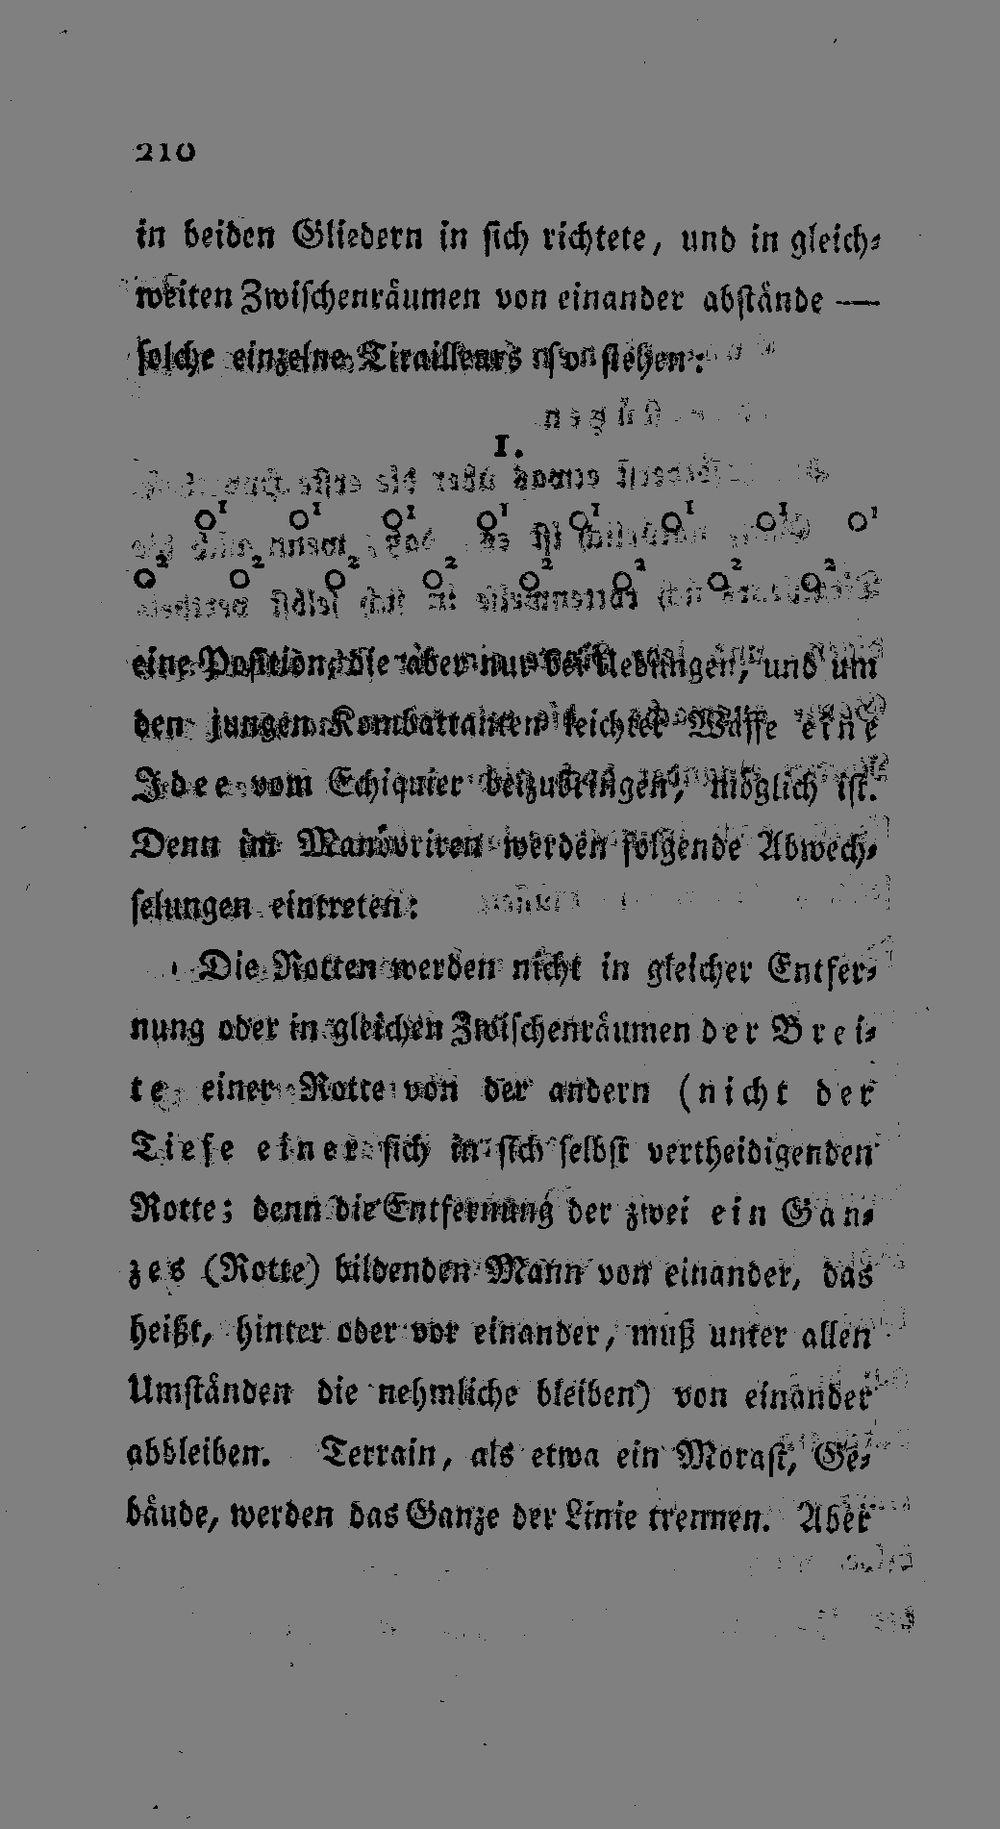 210
in beiden Gliedern in sich richtete, und in gleich-
weiten Zwischenräumen von einander abstände —
solche einzelne Tirailleurs so stehen:
I.
O¹ O¹ O¹ O¹ O¹ O¹ O¹ O¹
O² O² O² O² O² O² O² O²
eine Position, die aber nur bei Uebungen, und um
den jungen Kombattanten leichter Waffe eine
Idee vom Echiquier beizubringen, möglich ist.
Denn im Manövriren werden folgende Abwech-
selungen eintreten:
Die Rotten werden nicht in gleicher Entfer-
nung oder in gleichen Zwischenräumen der Brei-
te einer Rotte von der andern (nicht der
Tiefe einer sich in sich selbst vertheidigenden
Rotte; denn die Entfernung der zwei ein Gan-
zes (Rotte) bildenden Mann von einander, das
heißt, hinter oder vor einander, muß unter allen
Umständen die nehmliche bleiben) von einander
abbleiben. Terrain, als etwa ein Morast, Ge-
bäude, werden das Ganze der Linie trennen. Aber